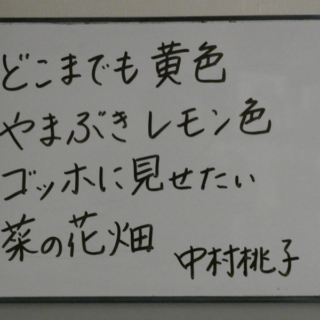 どこまでも黄色
やまぶきレモン色
ゴッホに見せたい
菜の花畑
中村桃子